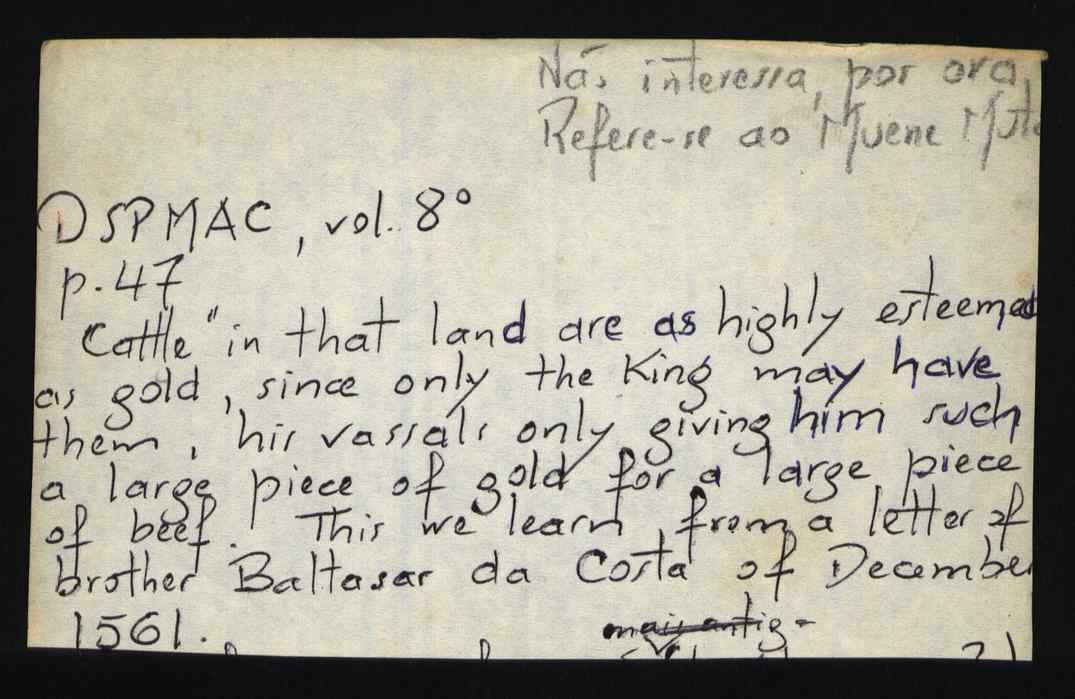 Não interessa, por ora,
Refere-se ao Muene
DSPMAC, vol. 8º
p. 47
"Cattle" in that land are as highly esteemed
as gold, since only the King may have
them, his vassals only giving him such
a large piece of gold for a large piece
of beef. This we learn from a letter of
brother Baltasar da Costa of December
1561.